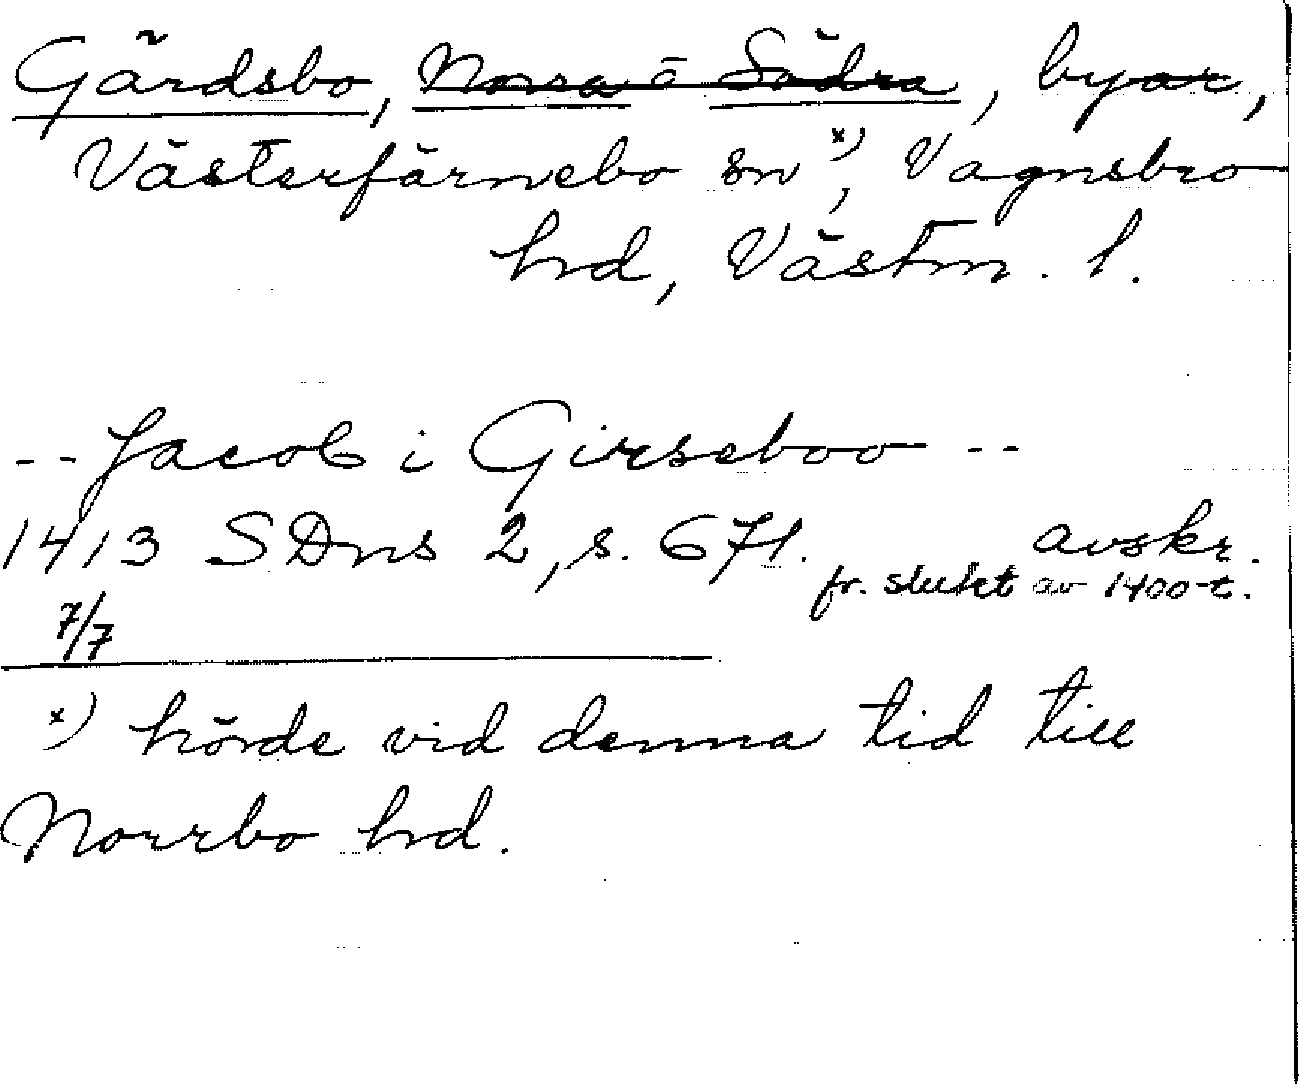 Gärdsbo, Norra o Södra, byar,
Västerfärnebo sn x), Vagnsbro
hd, Västm. l.
-- Jacob i Girseboo --
1413 SDns 2, s. 671. avskr.
fr. slutet av 1400-t.
7/7
x) hörde vid denna tid till
Norrbo hd.